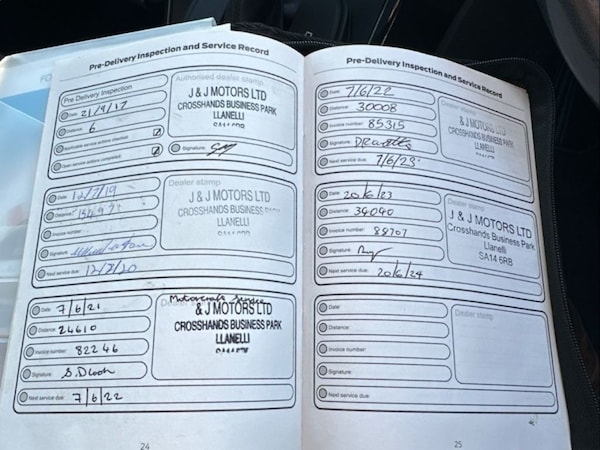 Pre-Delivery Inspection and Service Record
Pre Delivery Inspection
Date: 21/9/17
Distance: 6
Applicable service actions
Open service actions completed:
Authorised dealer stamp
J & J MOTORS LTD
CROSSHANDS BUSINESS PARK
LLANELLI
Signature:
Date: 12/7/19
Distance:
Invoice number:
Signature:
Next service due: 12/7/20
Dealer stamp
J & J MOTORS LTD
CROSSHANDS BUSINESS PARK
LLANELLI
Date: 7/6/21
Distance: 24610
Invoice number: 82246
Signature:
Next service due: 7/6/22
Motorcraft Service
& J MOTORS LTD
CROSSHANDS BUSINESS PARK
LLANELLI
24
Pre-Delivery Inspection and Service Record
Date: 7/6/22
Distance: 30008
Invoice number: 85315
Signature:
Next service due: 7/6/23
Dealer stamp
& J MOTORS LTD
CROSSHANDS BUSINESS PARK
LLANELLI
Date: 20/6/23
Distance: 34040
Invoice number: 88707
Signature:
Next service due: 20/6/24
Dealer stamp
J & J MOTORS LTD
Crosshands Business Park
Llanelli
SA14 6RB
Date:
Distance:
Invoice number:
Signature:
Next service due:
Dealer stamp
25